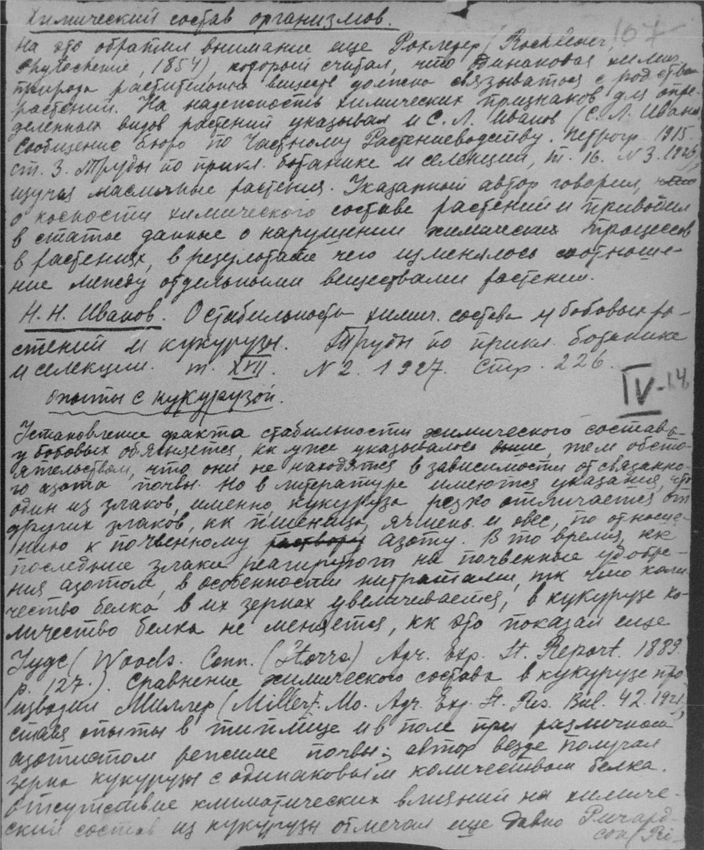 Химический состав организмов.
107
На это обратил внимание еще Рохледер (Rochleder,
1854), который считал, что одинаковая химич.
природа растительных веществ должна связываться с родством
растений. На надежность химических признаков для опре-
деленных видов растений указывал и С. Л. Иванов (С. Л. Иванов
Сообщение бюро по Частному Растениеводству. Петрогр. 1915.
ст. 3. Труды по прикл. ботанике и селекции, т. 16. N 3. 1926,
изучая масличные растения. Указанный автор говорил,
о косности химического состава растений и приводил
в статье данные о нарушении химических процессов
в растениях, в результате чего изменялось соотноше-
ние между отдельными веществами растений.
Н. Н. Иванов. О стабильности химич. состава у бобовых ра-
стений и кукурузы. Труды по прикл. ботанике
и селекции. т. XVII. N 2. 1927. Стр. 226.
IV-14
Опыты с кукурузой.
Установление факта стабильности химического состава
у бобовых объясняется, кк уже указывалось выше, тем обсто-
ятельством, что они не находятся в зависимости от связанно-
го азота почвы. Но в литературе имеются указания, что
один из злаков, именно, кукуруза резко отличается от
других злаков, кк пшеница, ячмень и овес, по отноше-
нию к почвенному азоту. В то время, кк
последние злаки реагируют на почвенные удобре-
ния азотом, в особенности нитратами, тк что коли-
чество белка в их зернах увеличивается, в кукурузе ко-
личество белка не меняется, кк это показал еще
Вудс (Woods. Conn. (Storrs) Agr. Exp. St. Report. 1889.
p. 127.). Сравнение химического состава в кукурузе про-
изводил Миллер (Miller). Mo. Agr. Exp. St. Res. Bul. 42. 1921,
ставя опыты в теплице и в поле при различном
азотистом режиме почвы; автор везде получал
зерна кукурузы с одинаковым количеством белка.
Отсутствие климатических влияний на химиче-
ский состав из кукурузы отмечал еще давно Ричард-
сон (Ri-